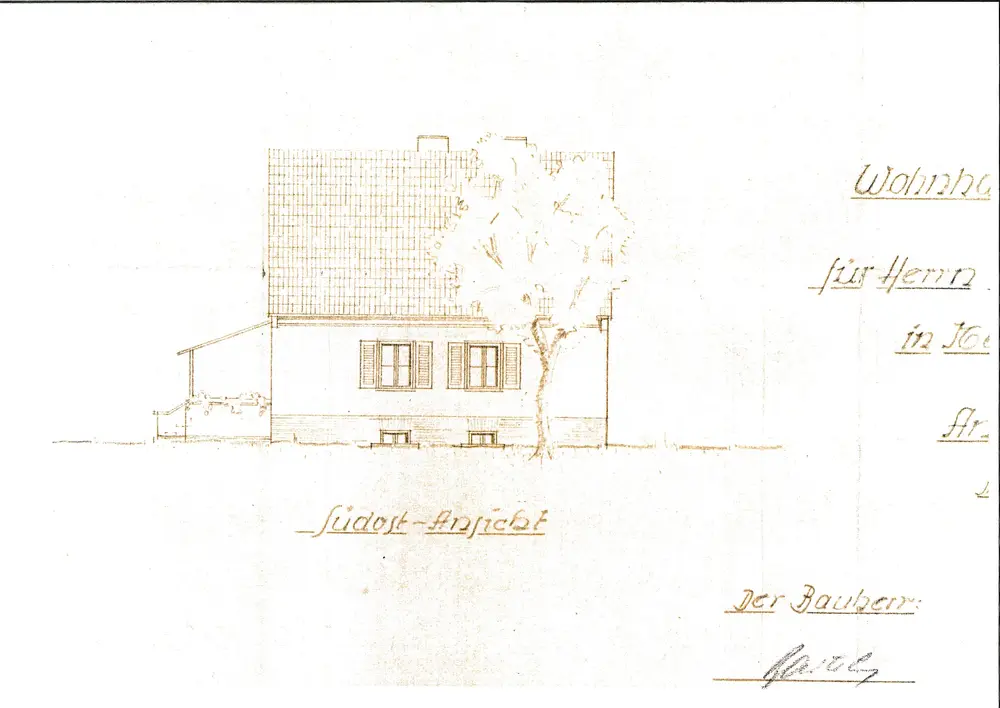 Wohnha
für Herrn
in
Ar
Südost-Ansicht
Der Bauherr: